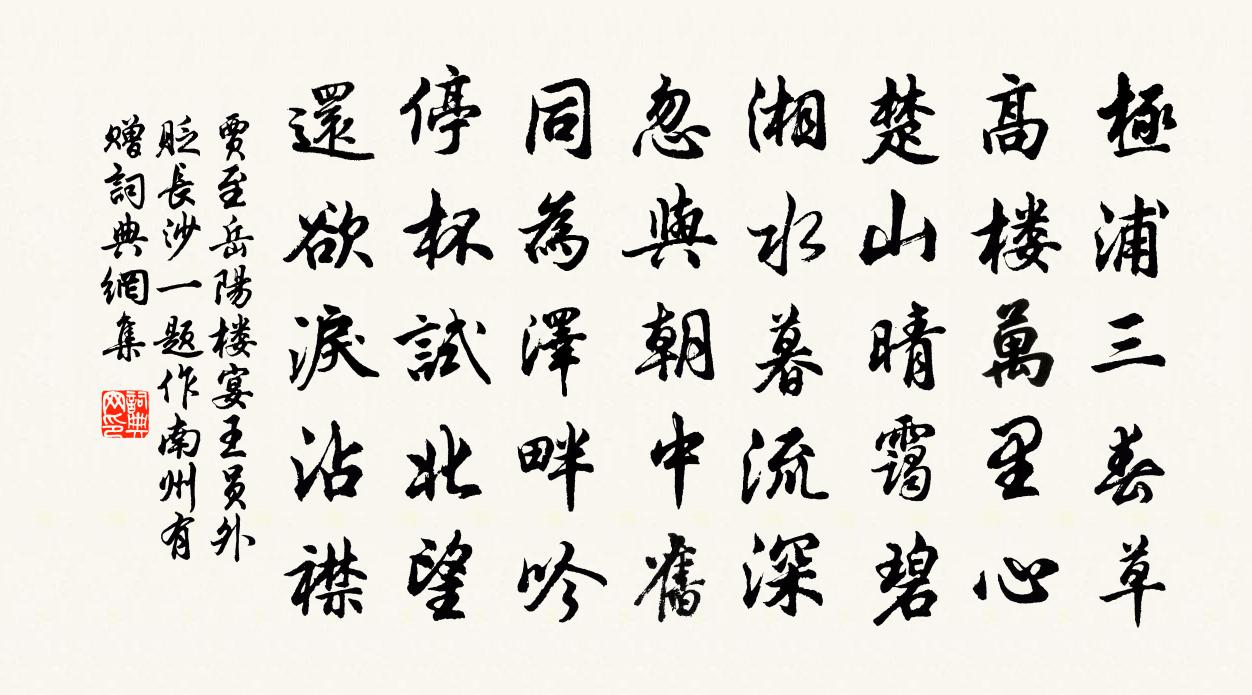 極浦三春草
高楼萬里心
楚山晴靄碧
湘水暮流深
忽與朝中舊
同為澤畔吟
停杯試北望
還欲淚沾襟
賈至岳陽楼宴王員外
貶長沙一題作南州有
贈詞典網集
詞典网印